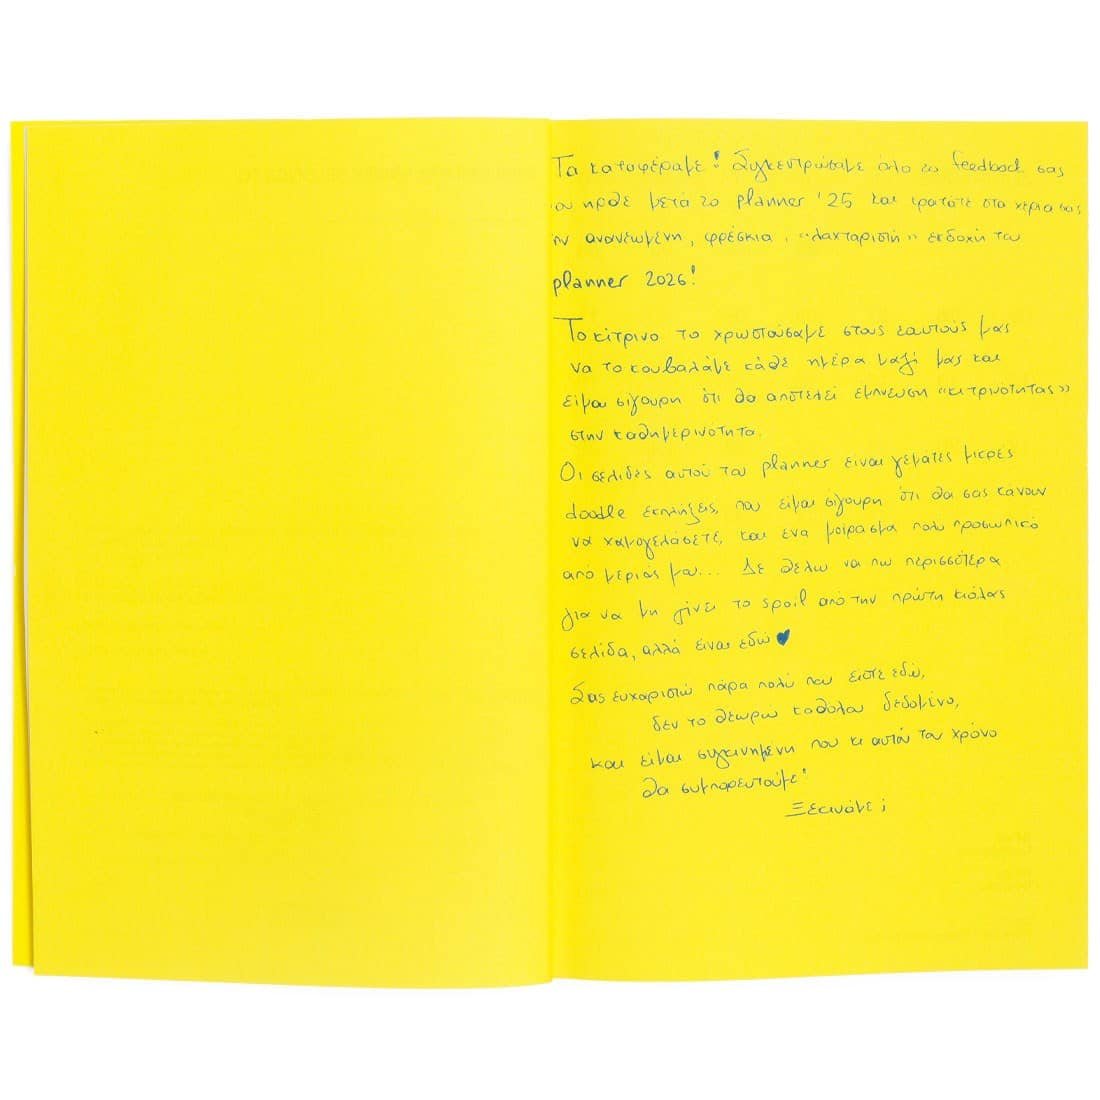 Τα καταφέραμε! Συγκεντρώσαμε όλο το feedback σας
ου ηρθε μετά το planner '25 και κρατάτε στα χέρια σας
ην ανανεωμένη, φρέσκια, «λαχταριστή» εκδοχή του
planner 2026!
Το κίτρινο το χρωστούσαμε στους εαυτούς μας
να το κουβαλάμε κάθε ημέρα μαζί μας και
είμαι σίγουρη ότι θα αποτελεί έμπνευση «κιτρινότητας»
στην καθημερινότητα.
Οι σελίδες αυτού του planner είναι γεμάτες μικρές
doodle εκπλήξεις, που είμαι σίγουρη ότι θα σας κάνουν
να χαμογελάσετε, και ένα μοίρασμα πολύ προσωπικό
από μεριάς μου... Δε θέλω να πω περισσότερα
για να μη γίνει το spoil από την πρώτη κιόλας
σελίδα, αλλά είναι εδώ ♥
Σας ευχαριστώ πάρα πολύ που είστε εδώ,
δεν το θεωρώ καθόλου δεδομένο,
και είμαι συγκινημένη που κι αυτόν τον χρόνο
θα συμπορευτούμε!
Ξεκινάμε;